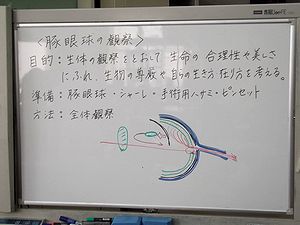 <豚眼球の観察>
目的:生体の観察をとおして生命の合理性や美しさ
にふれ、生物の尊厳や自らの生き方在り方を考える。
準備:豚眼球・シャーレ・手術用ハサミ・ピンセット
方法:全体観察